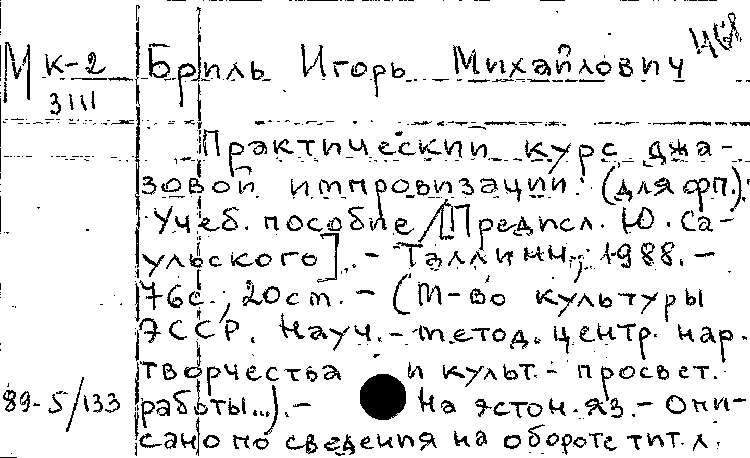 468
М К-2 Бриль Игорь Михайлович
3111
Практический курс джа-
зовой импровизации: (для фп.).
Учеб. пособие / [Предисл. Ю. Са-
ульского]. - Таллинн, 1988. -
76с., 20см. - (М-во культуры
ЭССР. Науч.-метод. центр нар.
творчества и культ.- просвет.
89-5/133 работы...). - На эстон. яз. - Опи-
сано по сведения на обороте тит. л.